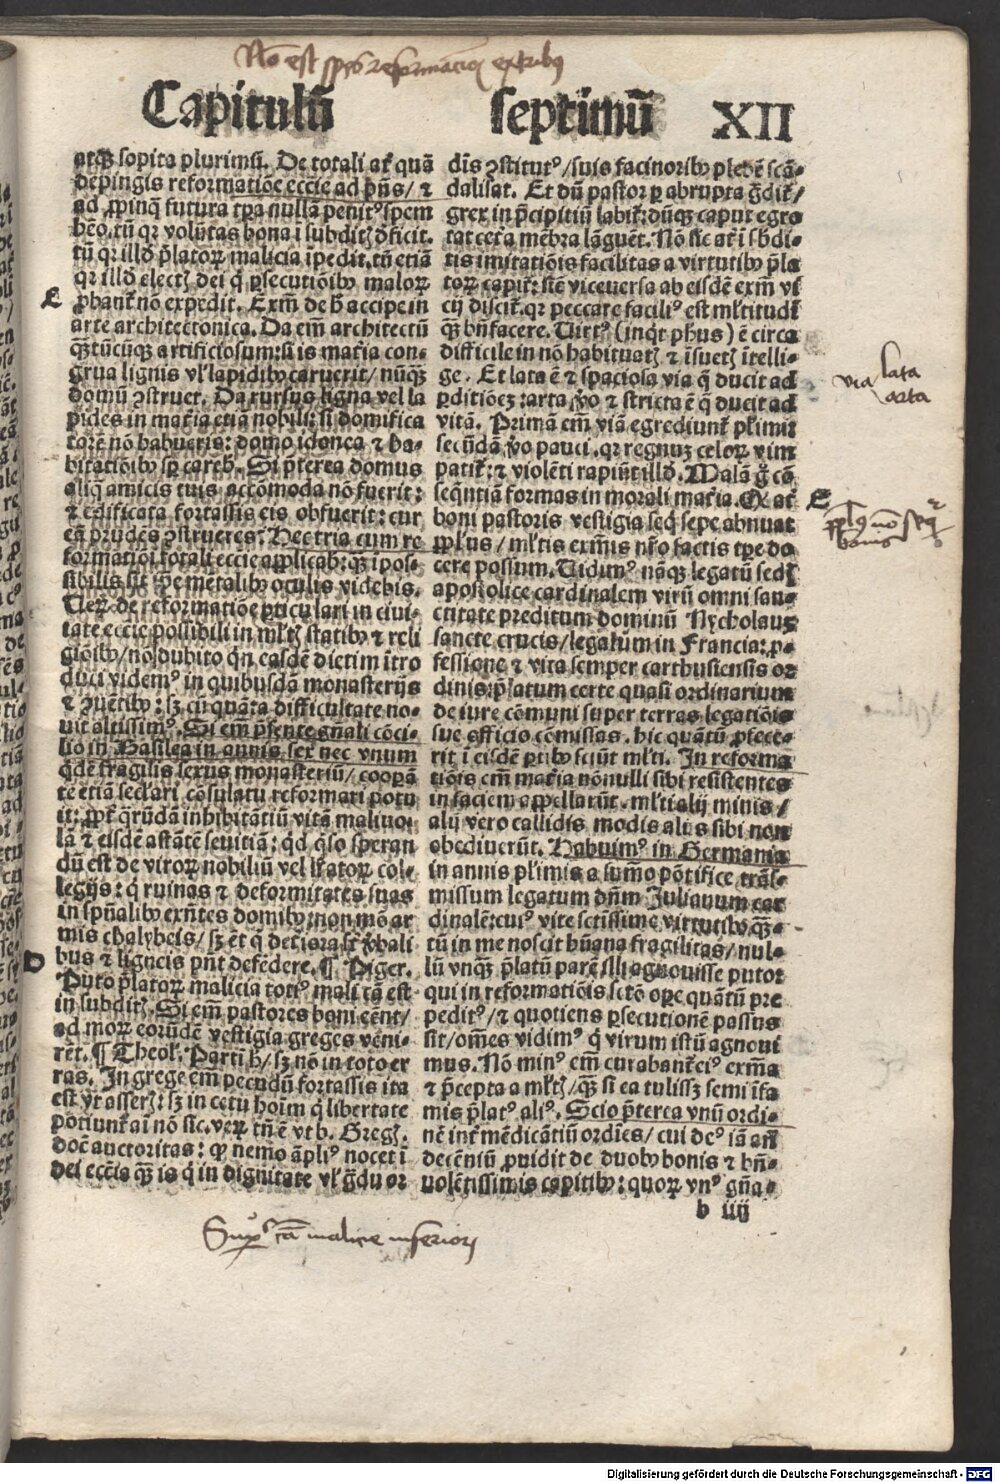 Capitulū septimū XII
atq̄ sopita plurimū. De totali aūt quā
depingis reformatiōe eccīe ad p̄ns / ⁊
ad ꝓpinq̄ futura tꝑa nullā penitꝰ spem
habeo. tū qꝛ volūtas bona ī subditꝭ dēficit.
tū qꝛ illā p̄latoꝝ malicia īpedit. tū etiā
qꝛ illd̄ electꝭ dei q̄ ꝑsecutiōibꝰ maloꝝ
E
ꝓbant̄ nō expedit. Exm̄ de h̄ accipe in
arte architectonica. Da em̄ architectū
q̄ntūcūq̄ artificiosum: si is mat̄ia con-
grua lignis vl̓ lapidibꝰ caruerit / nūq̄
domū ꝯstruet. Da rursus ligna vel la
pides in mat̄ia etiā nobili: si domifica
torē nō habueris: domo idonea ⁊ ha-
bitatiōibꝰ sꝑ careb̓. Si p̄terea domus
aliq̄ amicis tuis accōmoda nō fuerit:
⁊ edificata fortassis eis obfuerit: cur
eā prudēs ꝯstrueres? Hec tria cum re
formatiōi totali eccīe applicab̓: q̄ īpos-
sibilis sit ip̄e mētalibꝰ oculis videbis.
Veꝝ de reformatiōe ꝑticulari in ciui-
tate eccīe possibili in ml̓tꝭ statibꝰ ⁊ reli
giōibꝰ / nō dubito q̄n easdē dietim ītro
duci videmꝰ in quibusdā monasterijs
⁊ ꝯuētibꝰ: sꝫ cū quāta difficultate no-
uit altissimꝰ. Si em̄ p̄sente gn̄ali cōci-
lio in Basilea in annis sex nec vnum
qd̄ē fragilis sexus monasteriū / cooꝑā
te etiā seclari cōsulatu reformari potu
it: ꝓpt̄ q̄rūdā inhibitātiū vitā maliuo-
lā ⁊ eisdē astātē seuitiā: qd̄ q̄so speran
dū est de viroꝝ nobiliū vel l̓ratoꝝ col-
legijs: q̄ ruinas ⁊ deformitates suas
in sp̄ualibꝰ exn̄tes domibꝰ: non mō ar
mis chalybeis / sꝫ ēt q̄ deteriora st̄ v̓bali
D
bus ⁊ ligneis pn̄t defēdere. ¶ Piger.
Puto p̄latoꝝ malicia totiꝰ mali cā est
in subditꝭ. Si em̄ pastores boni eēnt /
ad moꝝ eorūdē vestigia greges veni-
rēt. ¶ Theol̓. Parti h̄ / sꝫ nō in toto er
ras. In grege em̄ pecudū fortassis ita
est vt asserꝭ: sꝫ in cetu hoīm q̄ libertate
potiunt̄ aī nō sic. veꝝ tn̄ ē vt b. Greg̓.
docē auctoritas: qꝙ nemo āpliꝰ nocet ī
dei eccīa q̄ꝫ is q̄ in dignitate vl̓ g̊du or
dīs ꝯstitutꝰ / suis facinoribꝰ plebē scā-
dalisat. Et dū pastor ꝑ abrupta g̊dit̄ /
grex in p̄cipitiū labit̄: dūq̄ caput egro
tat cet̓a mēbra lāguēt. Nō sic aūt ī sb̄di-
tis imitatiōis facilitas a virtutibꝰ p̄la
toꝝ capit̄: sicut viceuersa ab eisdē exm̄ vi
cij discit̄. qꝛ peccare faciliꝰ est ml̓titudī
q̄ꝫ bn̄facere. Virtꝰ (inqt̄ ph̄us) ē circa
difficile in nō habituatꝭ ⁊ īsuetꝭ ītelli-
ge. Et lata ē ⁊ spaciosa via q̄ ducit ad
ꝑditiōeꝫ: arta v̓o ⁊ stricta ē q̄ ducit ad
vitā. Primā em̄ viā egrediunt̄ pl̓imi:
secūdā v̓o pauci. qꝛ regnuꝫ celoꝝ vim
patit̄: ⁊ violēti rapiūt illd̄. Malā g̊ cō
seq̄ntiā formas in morali mat̄ia. Qꝙ aūt
E
boni pastoris vestigia seq̄ sepe abnuat
ppl̓us / ml̓tis exm̄is nr̄o factis tꝑe do
cere possum. Vidimꝰ nāq̄ legatū sedꝭ
apostolice cardinalem virū omni san-
ctitate preditum dominū Nycholaus
sancte crucis / legatum in Francia: ꝓ-
fessione ⁊ vita semper carthusiensis or
dinis: p̄latum certe quasi ordinarium
de iure cōmuni super terras legatiōis
sue officis cōmissas. hic quātū ꝓfece-
rit ī eisdē ꝑtibꝰ sciūt ml̓ti. In reforma
tiōis em̄ mat̄ia nōnulli sibi resistentes
in faciem appellarūt. ml̓ti alij minis /
alij vero callidis modis alios sibi non
obediuerūt. Habuimꝰ in Germania
in annis pl̓imis a sum̄o pōtifice trās-
missum legatum dn̄m Julianum car
dinalē: cuiꝰ vite sctīssime virtutibꝰ q̄ꝫ-
tū in me noscit hūana fragilitas / nul-
lū vnq̄ꝫ p̄latū parē illi agnouisse putor
qui in reformatiōis sctō oꝑe quātū pre
peditꝰ / ⁊ quotiens ꝑsecutionē passus
sit / oēs vidimꝰ q̄ virum istū agnoui
mus. Nō minꝰ em̄ curabant̄ eiꝰ exm̄a
⁊ p̄cepta a ml̓tꝭ / q̄ꝫ si ea tulissꝫ semi īfa
mis p̄latꝰ aliꝰ. Scio p̄terea vnū ordi-
nē int̄ mēdicātiū ordīes / cui deꝰ iā an̄
decēniū ꝓuidit de duobꝰ bonis ⁊ bn̄-
uolētissimis capitibꝰ: quoꝝ vnꝰ gn̄a-
b iiij
via lata
arta
Digitalisierung gefördert durch die Deutsche Forschungsgemeinschaft - DFG